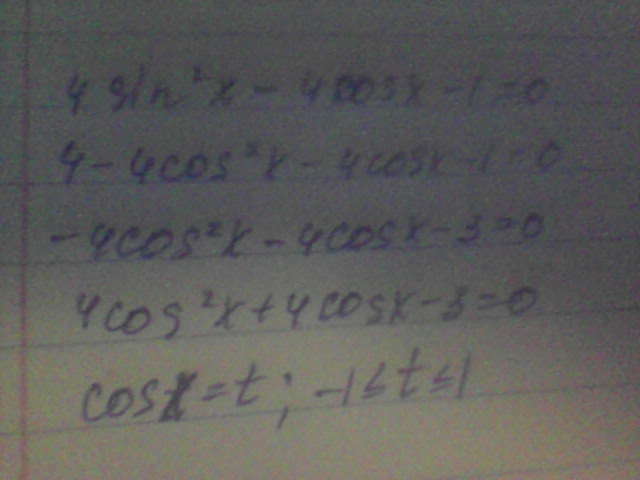 4 sin²x - 4cosx - 1 = 0
4 - 4cos²x - 4cosx - 1 = 0
-4cos²x - 4cosx - 3 = 0
4cos²x + 4cosx - 3 = 0
cosx = t ; -1 ≤ t ≤ 1